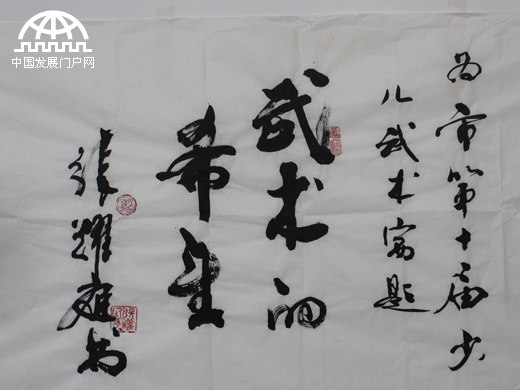 为市第十届少
儿武术赛题
武术的
希望
张耀庭书
中国发展门户网